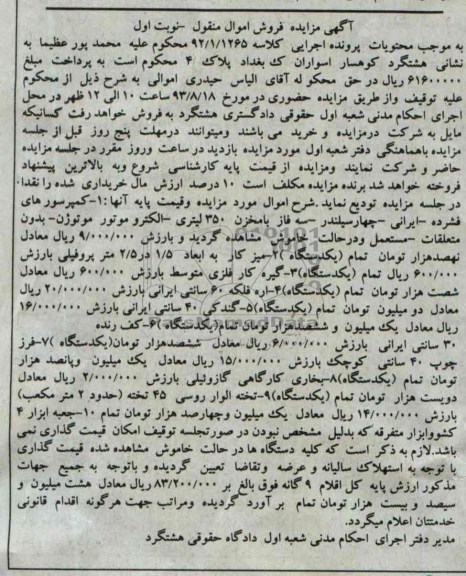 آگهی مزایده فروش اموال منقول -نوبت اول
به موجب محتویات پرونده اجرایی کلاسه ۹۲/۱/۱۲۶۵ محکوم علیه محمد پور عظیما به
نشانی هشتگرد کوهسار اسواران ک بغداد پلاک ۴ محکوم است به پرداخت مبلغ
۶۱۶۰۰۰۰۰ ریال در حق محکو له آقای الیاس حیدری اموالی به شرح ذیل از محکوم
علیه توقیف واز طریق مزایده حضوری در مورخ ۹۳/۸/۱۸ ساعت ۱۰ الی ۱۲ ظهر در محل
اجرای احکام مدنی شعبه اول حقوقی دادگستری هشتگرد به فروش خواهد رفت کسانیکه
مایل به شرکت درمزایده و خرید می باشند ومیتوانند درمهلت پنج روز قبل از جلسه
مزایده باهماهنگی دفتر شعبه اول مورد مزایده بازدید در ساعت وروز مقرر در جلسه مزایده
حاضر و شرکت نمایند ومزایده از قیمت پایه کارشناسی شروع وبه بالاترین پیشنهاد
فروخته خواهد شد برنده مزایده مکلف است ۱۰ درصد ارزش مال خریداری شده را نقدا
در جلسه مزایده تودیع نماید .شرح اموال مورد مزایده وقیمت پایه آنها :۱-کمپرسور های
فشرده -ایرانی -چهارسیلندر -سه فاز بامخزن ۳۵۰ لیتری -الکترو موتور موتوژن- بدون
متعلقات -مستعمل ودرحالت خاموش مشاهده گردید و بارزش ۹/۰۰۰/۰۰۰ ریال معادل
نهصدهزار تومان تمام (یکدستگاه )۲-میز کار به ابعاد ۱/۵ در۲/۵ متر پروفیلی بارزش
۶۰۰/۰۰۰ ریال تمام (یکدستگاه)۳-گیره کار فلزی متوسط بارزش ۶۰۰/۰۰۰ ریال معادل
شصت هزار تومان تمام (یکدستگاه)۴-اره فلکه ۶۰ سانتی ایرانی بارزش ۲۰/۰۰۰/۰۰۰ ریال
معادل دو میلیون تومان تمام (یکدستگاه)۵-گندگی ۴۰ سانتی ایرانی بارزش ۱۶/۰۰۰/۰۰۰
ریال معادل یک میلیون و ششصدهزار تومان تمام(یکدستگاه )۶-کف رنده
۳۰ سانتی ایرانی بارزش ۶/۰۰۰/۰۰۰ ریال معادل ششصدهزار تومان(یکدستگاه )۷-فرز
چوب ۴۰ سانتی کوچک بارزش ۱۵/۰۰۰/۰۰۰ ریال معادل یک میلیون وپانصد هزار
تومان تمام (یکدستگاه)۸-بخاری کارگاهی گازوئیلی بارزش ۲/۰۰۰/۰۰۰ ریال معادل
دویست هزار تومان تمام (یکدستگاه)۹-تخته الوار روسی ۴۵ تخته (حدود ۲ متر مکعب)
بارزش ۱۴/۰۰۰/۰۰۰ ریال معادل یک میلیون وچهارصد هزار تومان تمام ۱۰-جعبه ابزار ۴
کشووابزار متفرقه که بدلیل مشخص نبودن در صورتجلسه توقیف امکان قیمت گذاری نمی
باشد.لازم به ذکر است که کلیه دستگاه ها در حالت خاموش مشاهده شده قیمت گذاری
با توجه به استهلاک سالیانه و عرضه وتقاضا تعیین گردیده و باتوجه به جمیع جهات
مذکور ارزش پایه کل اقلام ۹ گانه فوق بالغ بر ۸۳/۲۰۰/۰۰۰ ریال معادل هشت میلیون و
سیصد و بیست هزار تومان تمام بر آورد گردیده ومراتب جهت هرگونه اقدام قانونی
خدمتتان اعلام میگردد.
مدیر دفتر اجرای احکام مدنی شعبه اول دادگاه حقوقی هشتگرد